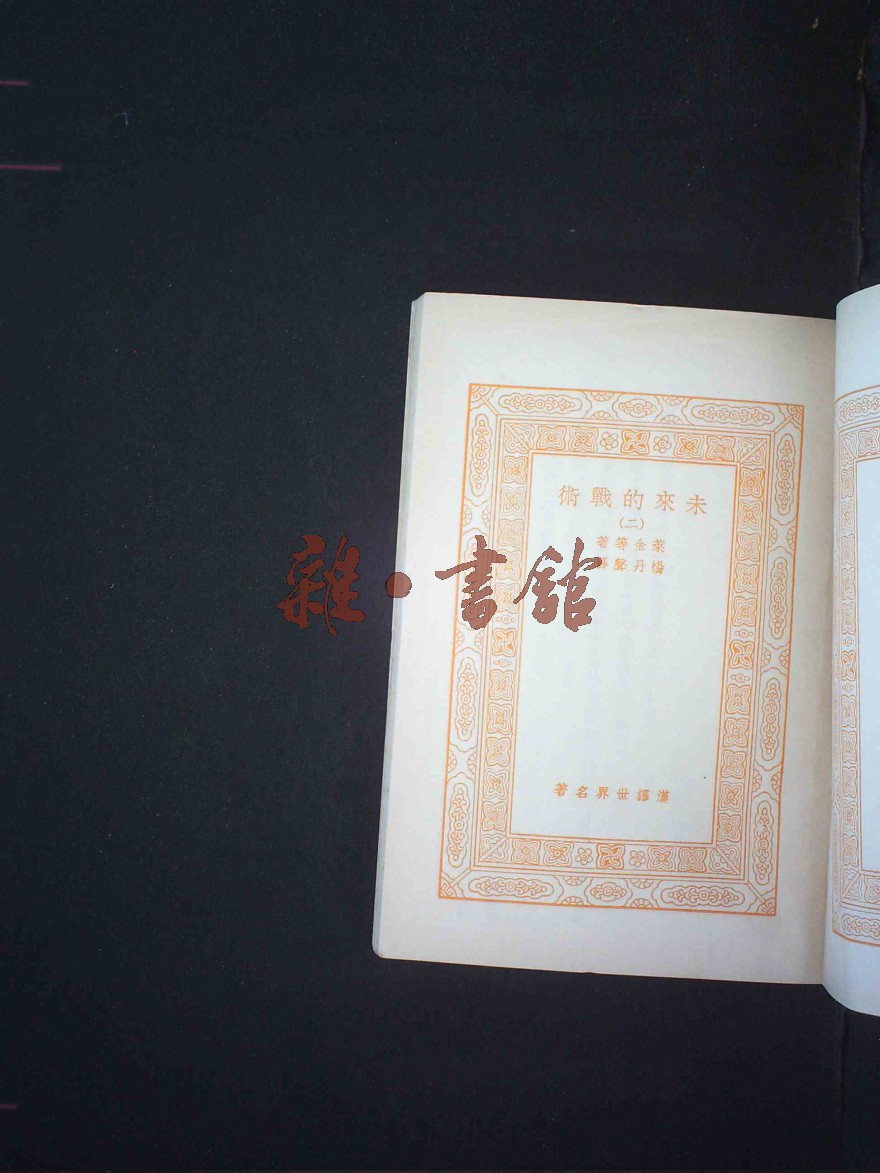 未來的戰術
(二)
萊金等著
楊丹聲譯
雜·書館
漢譯世界名著